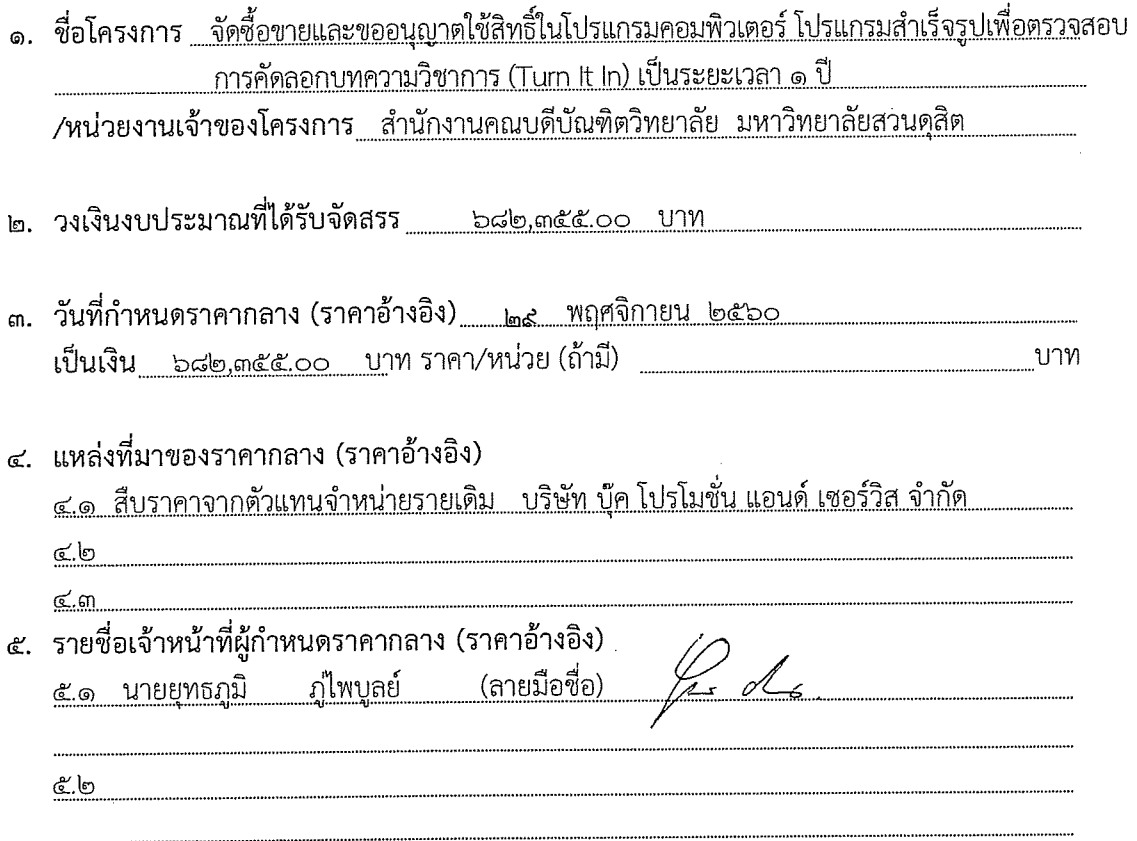 ๑. ชื่อโครงการ จัดซื้อขายและขออนุญาตใช้สิทธิ์ในโปรแกรมคอมพิวเตอร์ โปรแกรมสำเร็จรูปเพื่อตรวจสอบ
การคัดลอกบทความวิชาการ (Turn It In) เป็นระยะเวลา ๑ ปี
/หน่วยงานเจ้าของโครงการ สำนักงานคณบดีบัณฑิตวิทยาลัย มหาวิทยาลัยสวนดุสิต
๒. วงเงินงบประมาณที่ได้รับจัดสรร ๖๘๒,๓๕๕.๐๐ บาท
๓. วันที่กำหนดราคากลาง (ราคาอ้างอิง) ๒๙ พฤศจิกายน ๒๕๖๐
เป็นเงิน ๖๘๒,๓๕๕.๐๐ บาท ราคา/หน่วย (ถ้ามี) บาท
๔. แหล่งที่มาของราคากลาง (ราคาอ้างอิง)
๔.๑ สืบราคาจากตัวแทนจำหน่ายรายเดิม บริษัท บุ๊ค โปรโมชั่น แอนด์ เซอร์วิส จำกัด
๔.๒
๔.๓
๕. รายชื่อเจ้าหน้าที่ผู้กำหนดราคากลาง (ราคาอ้างอิง)
๕.๑ นายยุทธภูมิ ภู่ไพบูลย์ (ลายมือชื่อ)
๕.๒